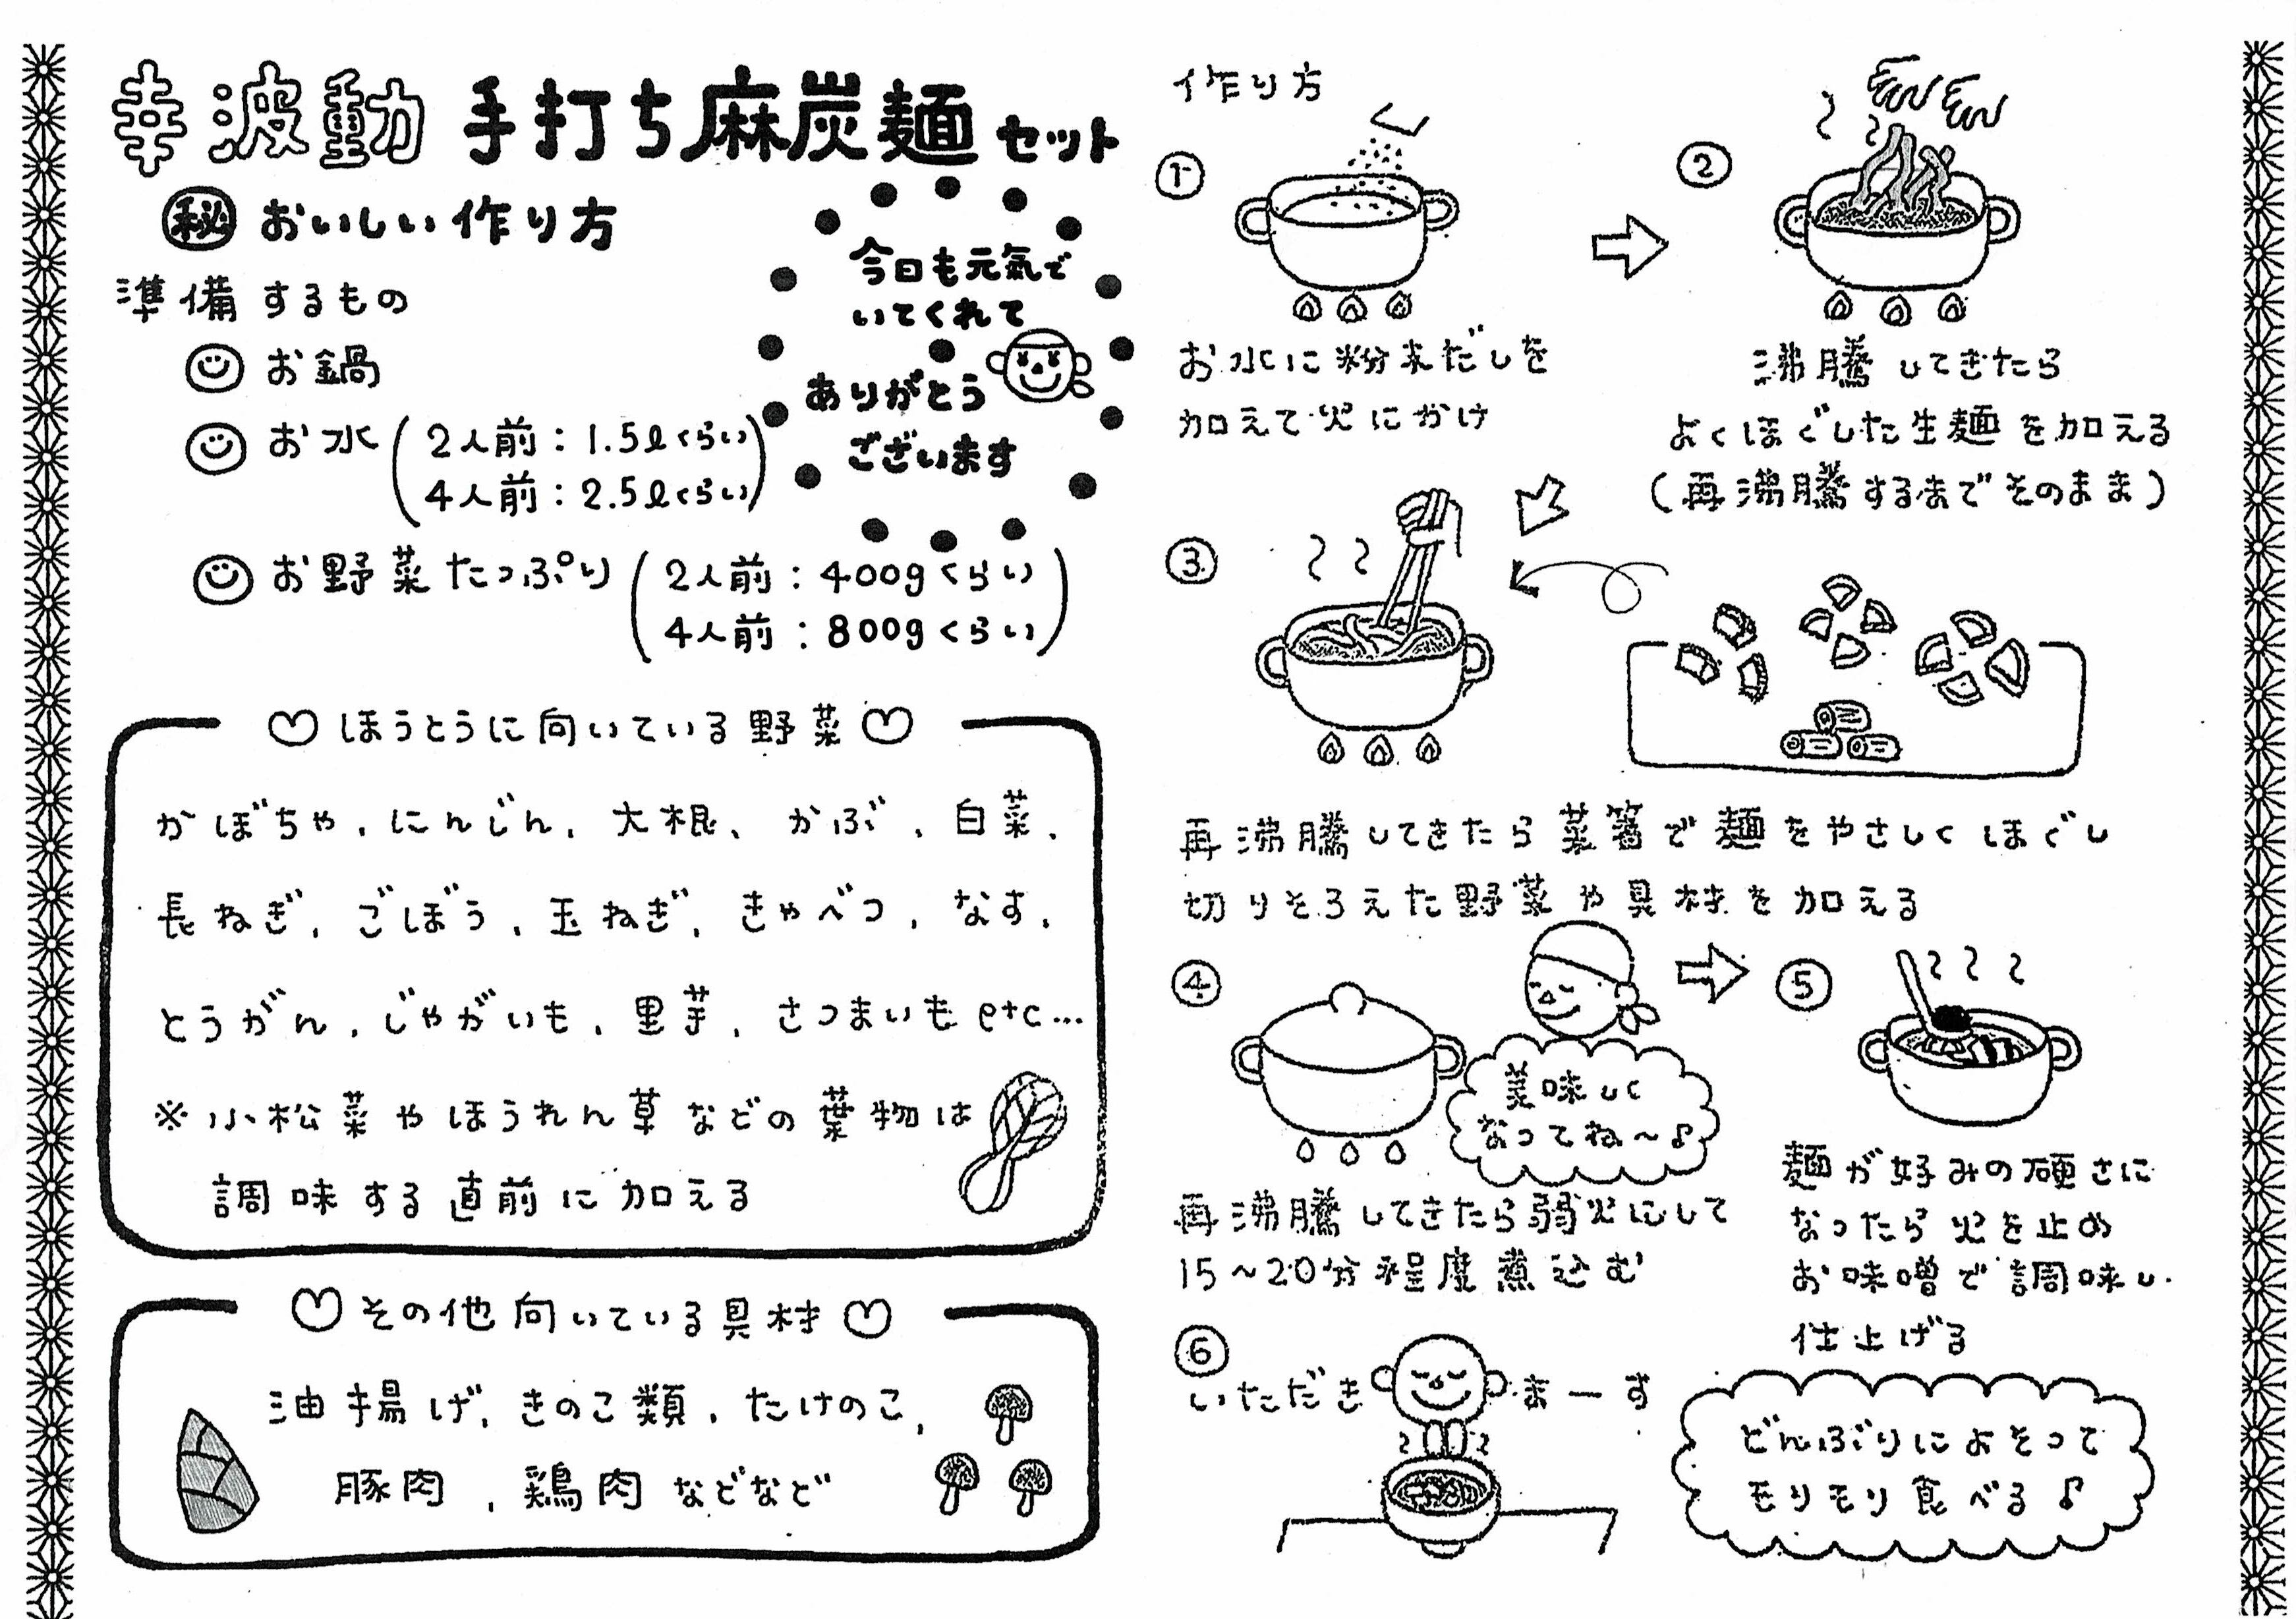 幸波動 手打ち麻炭麺セット
㊙ おいしい作り方
今日も元気で
いてくれて
ありがとう
ございます
準備するもの
お鍋
お水(2人前:1.5ℓくらい
4人前:2.5ℓくらい)
お野菜たっぷり(2人前:400gくらい
4人前:800gくらい)
♡ほうとうに向いている野菜♡
かぼちゃ、にんじん、大根、かぶ、白菜、
長ねぎ、ごぼう、玉ねぎ、きゃべつ、なす、
とうがん、じゃがいも、里芋、さつまいも etc…
※小松菜やほうれん草などの葉物は
調味する直前に加える
♡その他向いている具材♡
油揚げ、きのこ類、たけのこ、
豚肉、鶏肉などなど
作り方
①
お水に粉末だしを
加えて火にかけ
②
沸騰してきたら
よくほぐした生麺を加える
(再沸騰するまでそのまま)
③
再沸騰してきたら菜箸で麺をやさしくほぐし
切りそろえた野菜や具材を加える
④
美味しく
なってね〜♪
再沸騰してきたら弱火にして
15〜20分程度煮込む
⑤
麺が好みの硬さに
なったら火を止め
お味噌で調味し
仕上げる
⑥
いただきまーす
どんぶりによそって
モリモリ食べる♪